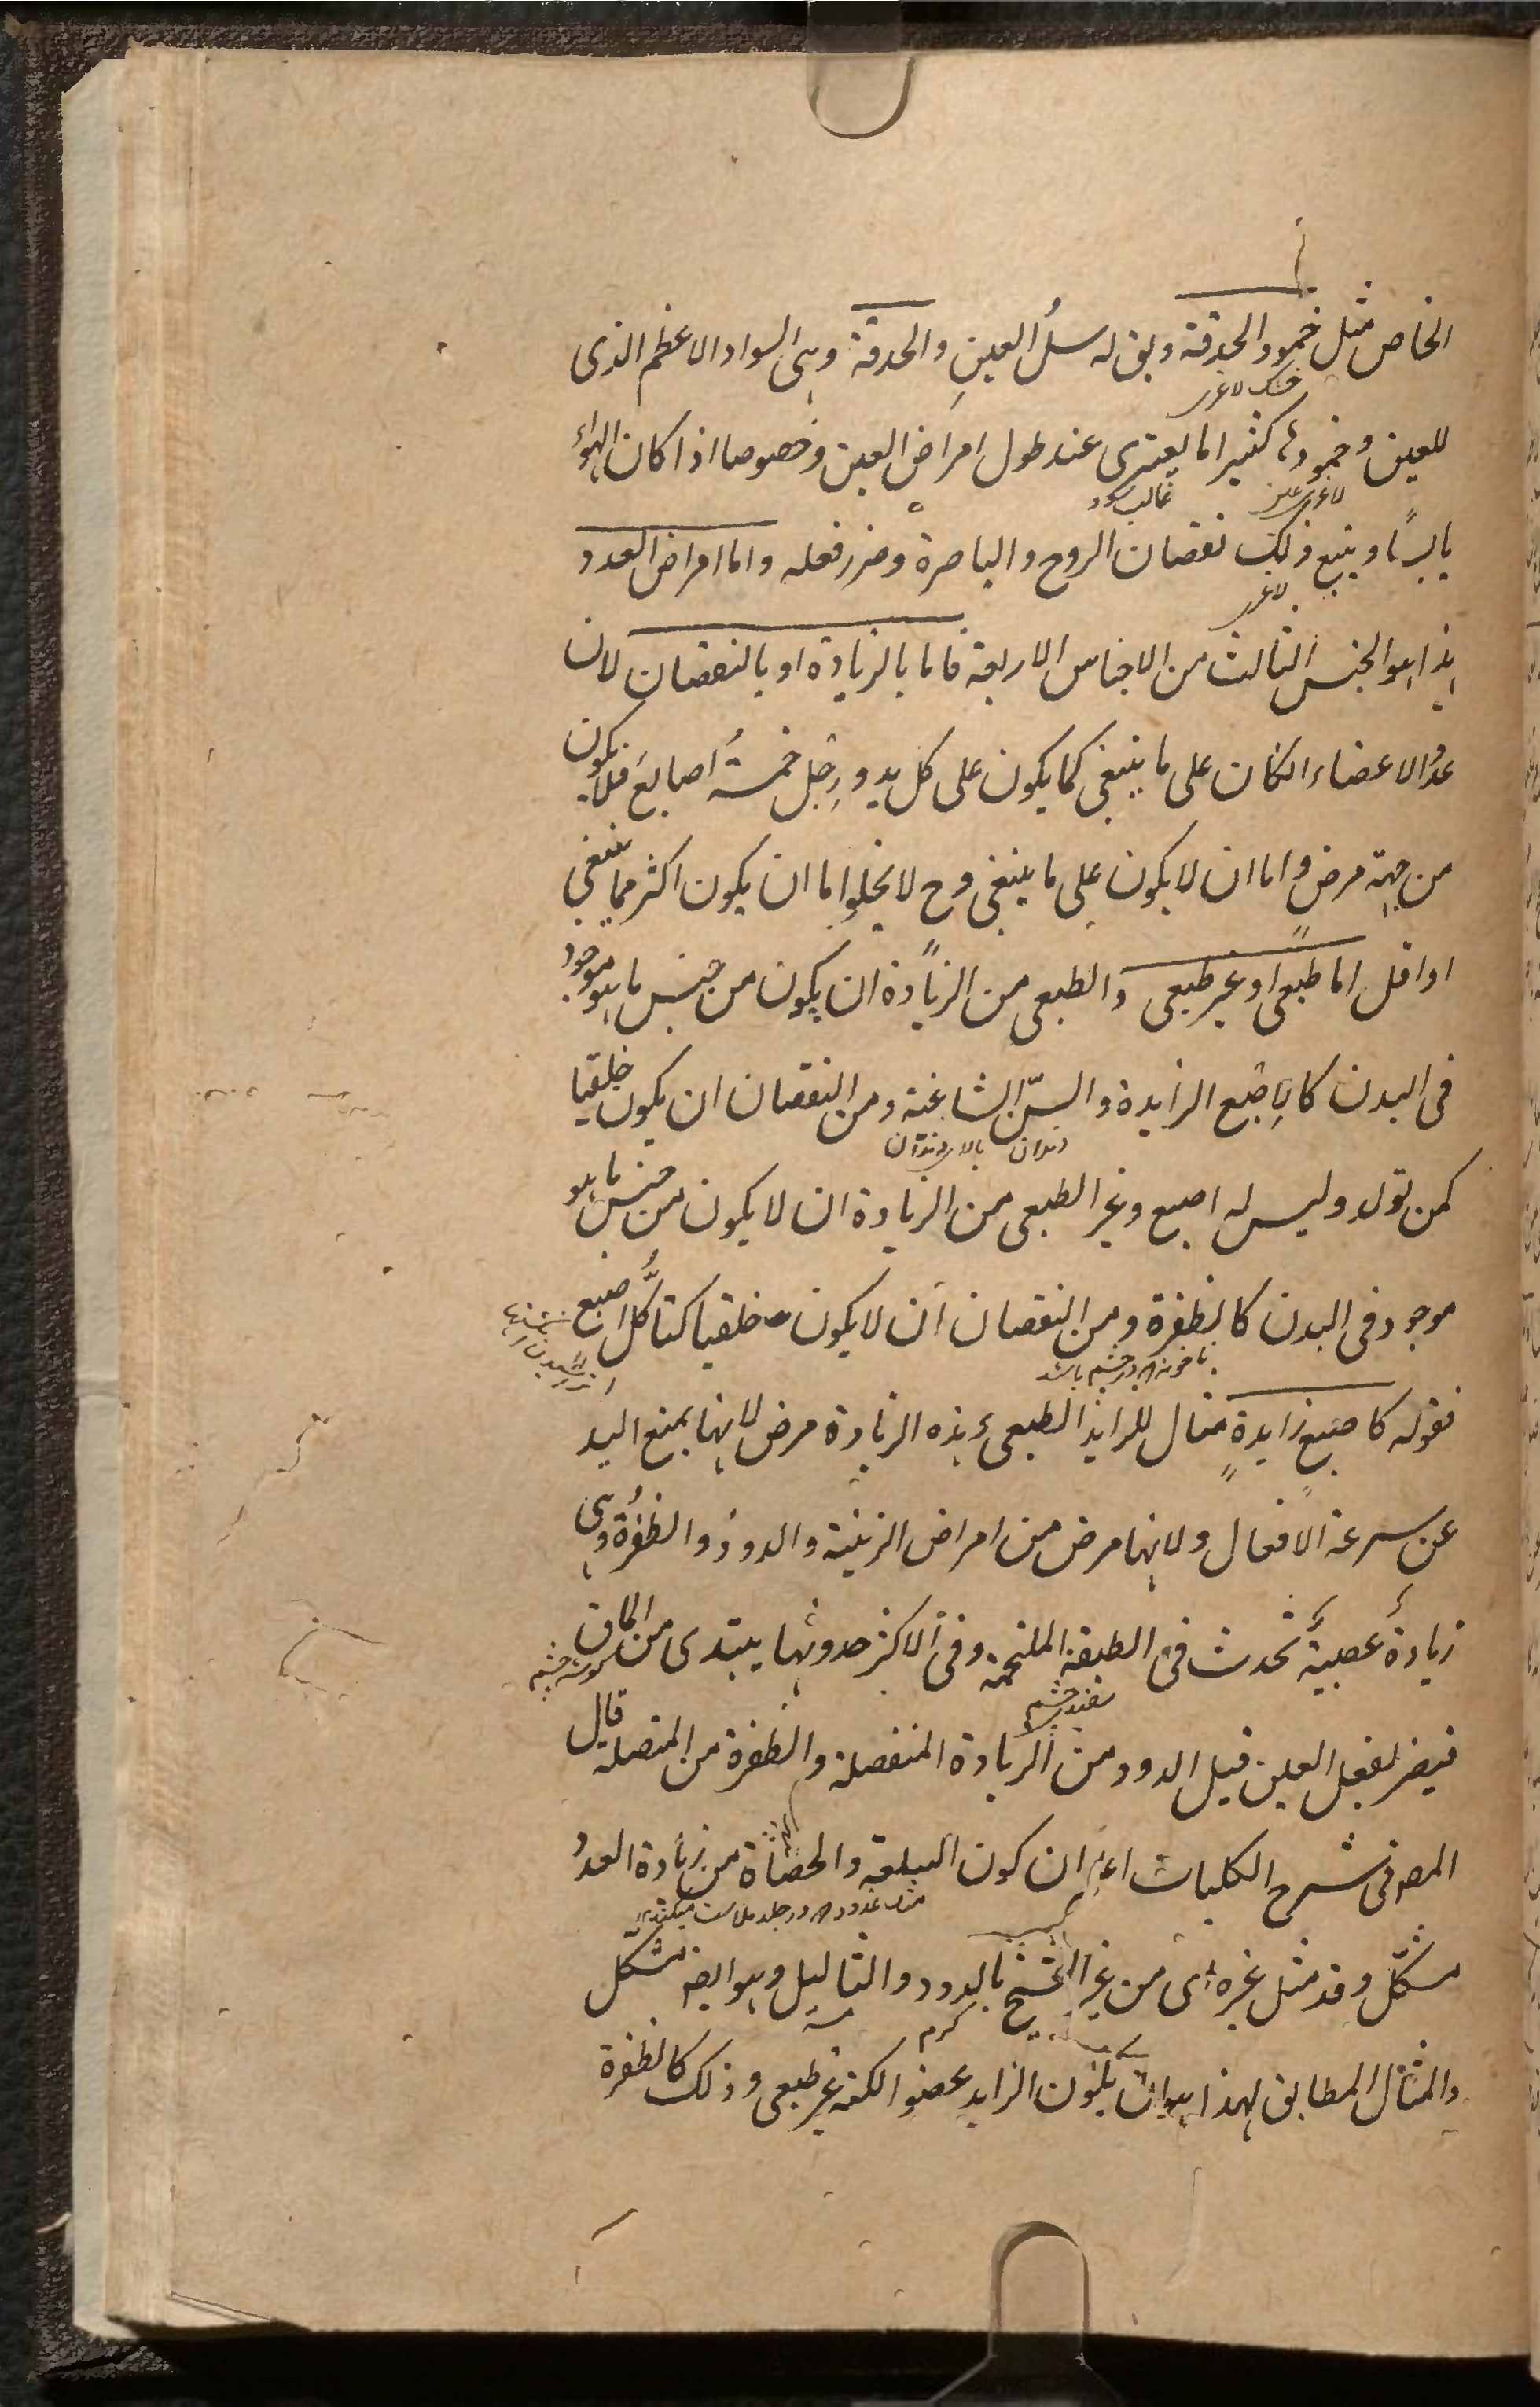 الخاص مثل خمود الحدقة ويق له سل العين والحدقة وهى السواد الاعظم الذى
للعين وخمودها كثيرا ما يعترى عند طول امراض العين وخصوصا اذا كان الهواء
يابسًا ويتبع ذلك نقصان الروح والباصرة وضرر فعله واما امراض العدد
لاغر
هذا هو الجنس الثالث من الاجناس الاربعة فاما بالزيادة او بالنقصان لان
عدد الاعضاء اكان على ما ينبغى كما يكون على كل يد ورجل خمسة اصابع فلا يكون
من جهته مرض واما ان لا يكون على ما ينبغى وح لا يخلوا ما ان يكون اكثر مما ينبغى
او اقل اما طبعى او غير طبعى والطبعى من الزيادة ان يكون من جنس ما هو موجود
فى البدن كالاصبع الزايدة والسنّ الشاغية ومن النقصان ان يكون خلقيا
دندان بالاى دندان
كمن تولد وليس له اصبع وغير الطبعى من الزيادة ان لا يكون من جنس ما هو
موجود فى البدن كالظفرة ومن النقصان ان لا يكون خلقيا كتاكل اصبع
ناخونه كه در چشم باشد
فقوله كاصبع زايدةٍ مثال للزايد الطبعى وهذه الزيادة مرض لانها يمنع اليد
عن سرعة الافعال ولانها مرض من امراض الزينة والدود والظفرة وهى
زيادة عصبية تحدث فى الطبقة الملتحمة وفى الاكثر حدوثها يبتدى من الماق
گوشه چشم
سفیدی چشم
فيضر لفعل العين قيل الدود من الزيادة المنفصلة والظفرة من المتصلة قال
المصر فى شرح الكليات اعلم ان كون السلعة والحصاة من زيادة العدد
مشكل وقد مثل غيره اى من غير الشيخ بالدود والثاليل وهو ايضا مشكل
كرم
والمثال المطابق لهذا هو ان يكون الزايد عضوا لكنه غير طبعى وذلك كالظفرة